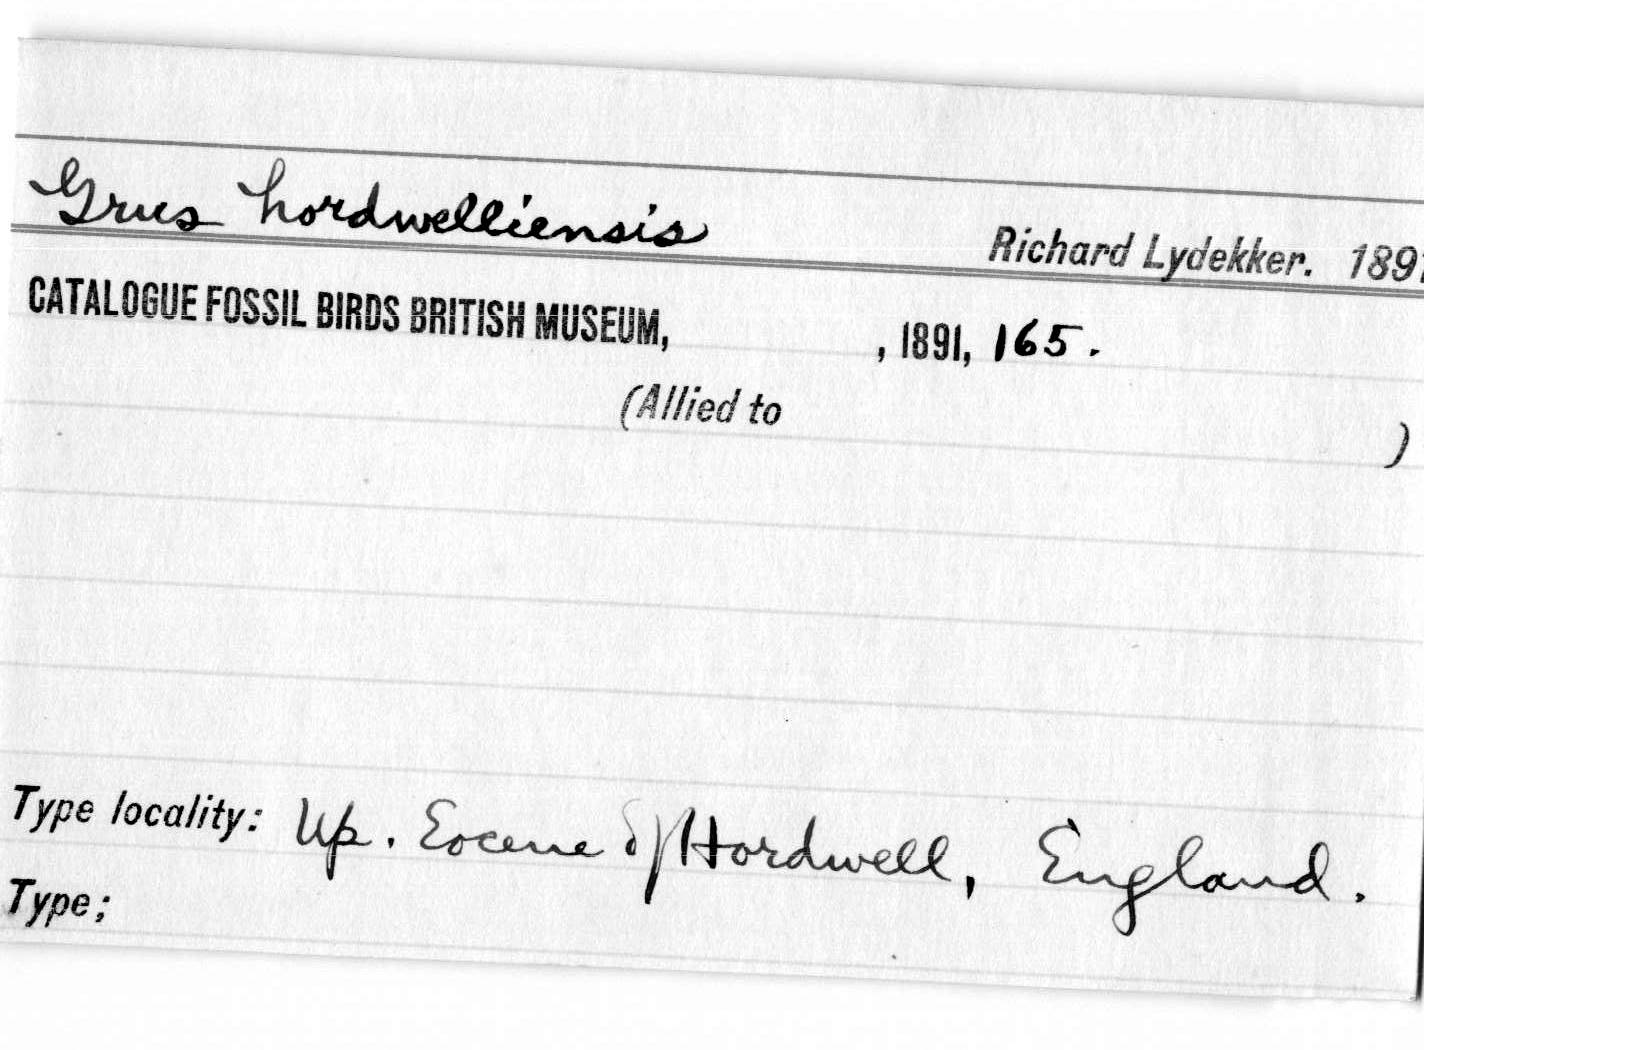 Grus hordwelliensis
Richard Lydekker. 1891
CATALOGUE FOSSIL BIRDS BRITISH MUSEUM, , 1891, 165.
(Allied to )
Type locality: Up. Eocene of Hordwell, England.
Type;